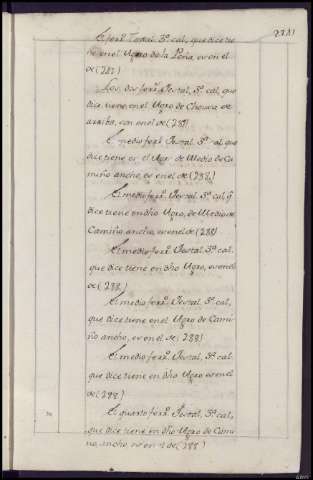 El ferr.º Jestal 3.ª cal, que dice tie
ne en el Ugro de la Peña, es en el
de (287)
Los dos ferr.s Jestal, 3.ª cal, que
dice tiene, en el Ugro de Chousa de
arriba, son en el de (288)
El medio ferr.º Jestal 3.ª cal, que
dice tiene en el Ugro de Medio de Ca
miño ancho, es en el de (288)
El medio ferr.º Jestal 3.ª cal q.
dice tiene en dho Ugro, de Medio de
Camiño ancho, es en el de (288)
El medio ferr.º Jestal 3.ª cal.
que dice tiene en dho Ugro, es en el
de (288)
El medio ferr.º Jestal 3.ª cal,
que dice tiene en el Ugro de Cami
ño ancho, es en el de (288)
El medio ferr.º Jestal, 3.ª cal
que dice tiene en dho Ugro es en el
de (288)
El quarto ferr.º Jestal, 3.ª cal,
que dice tiene en dho Ugro de Cami
no, ancho, es en el de (288)